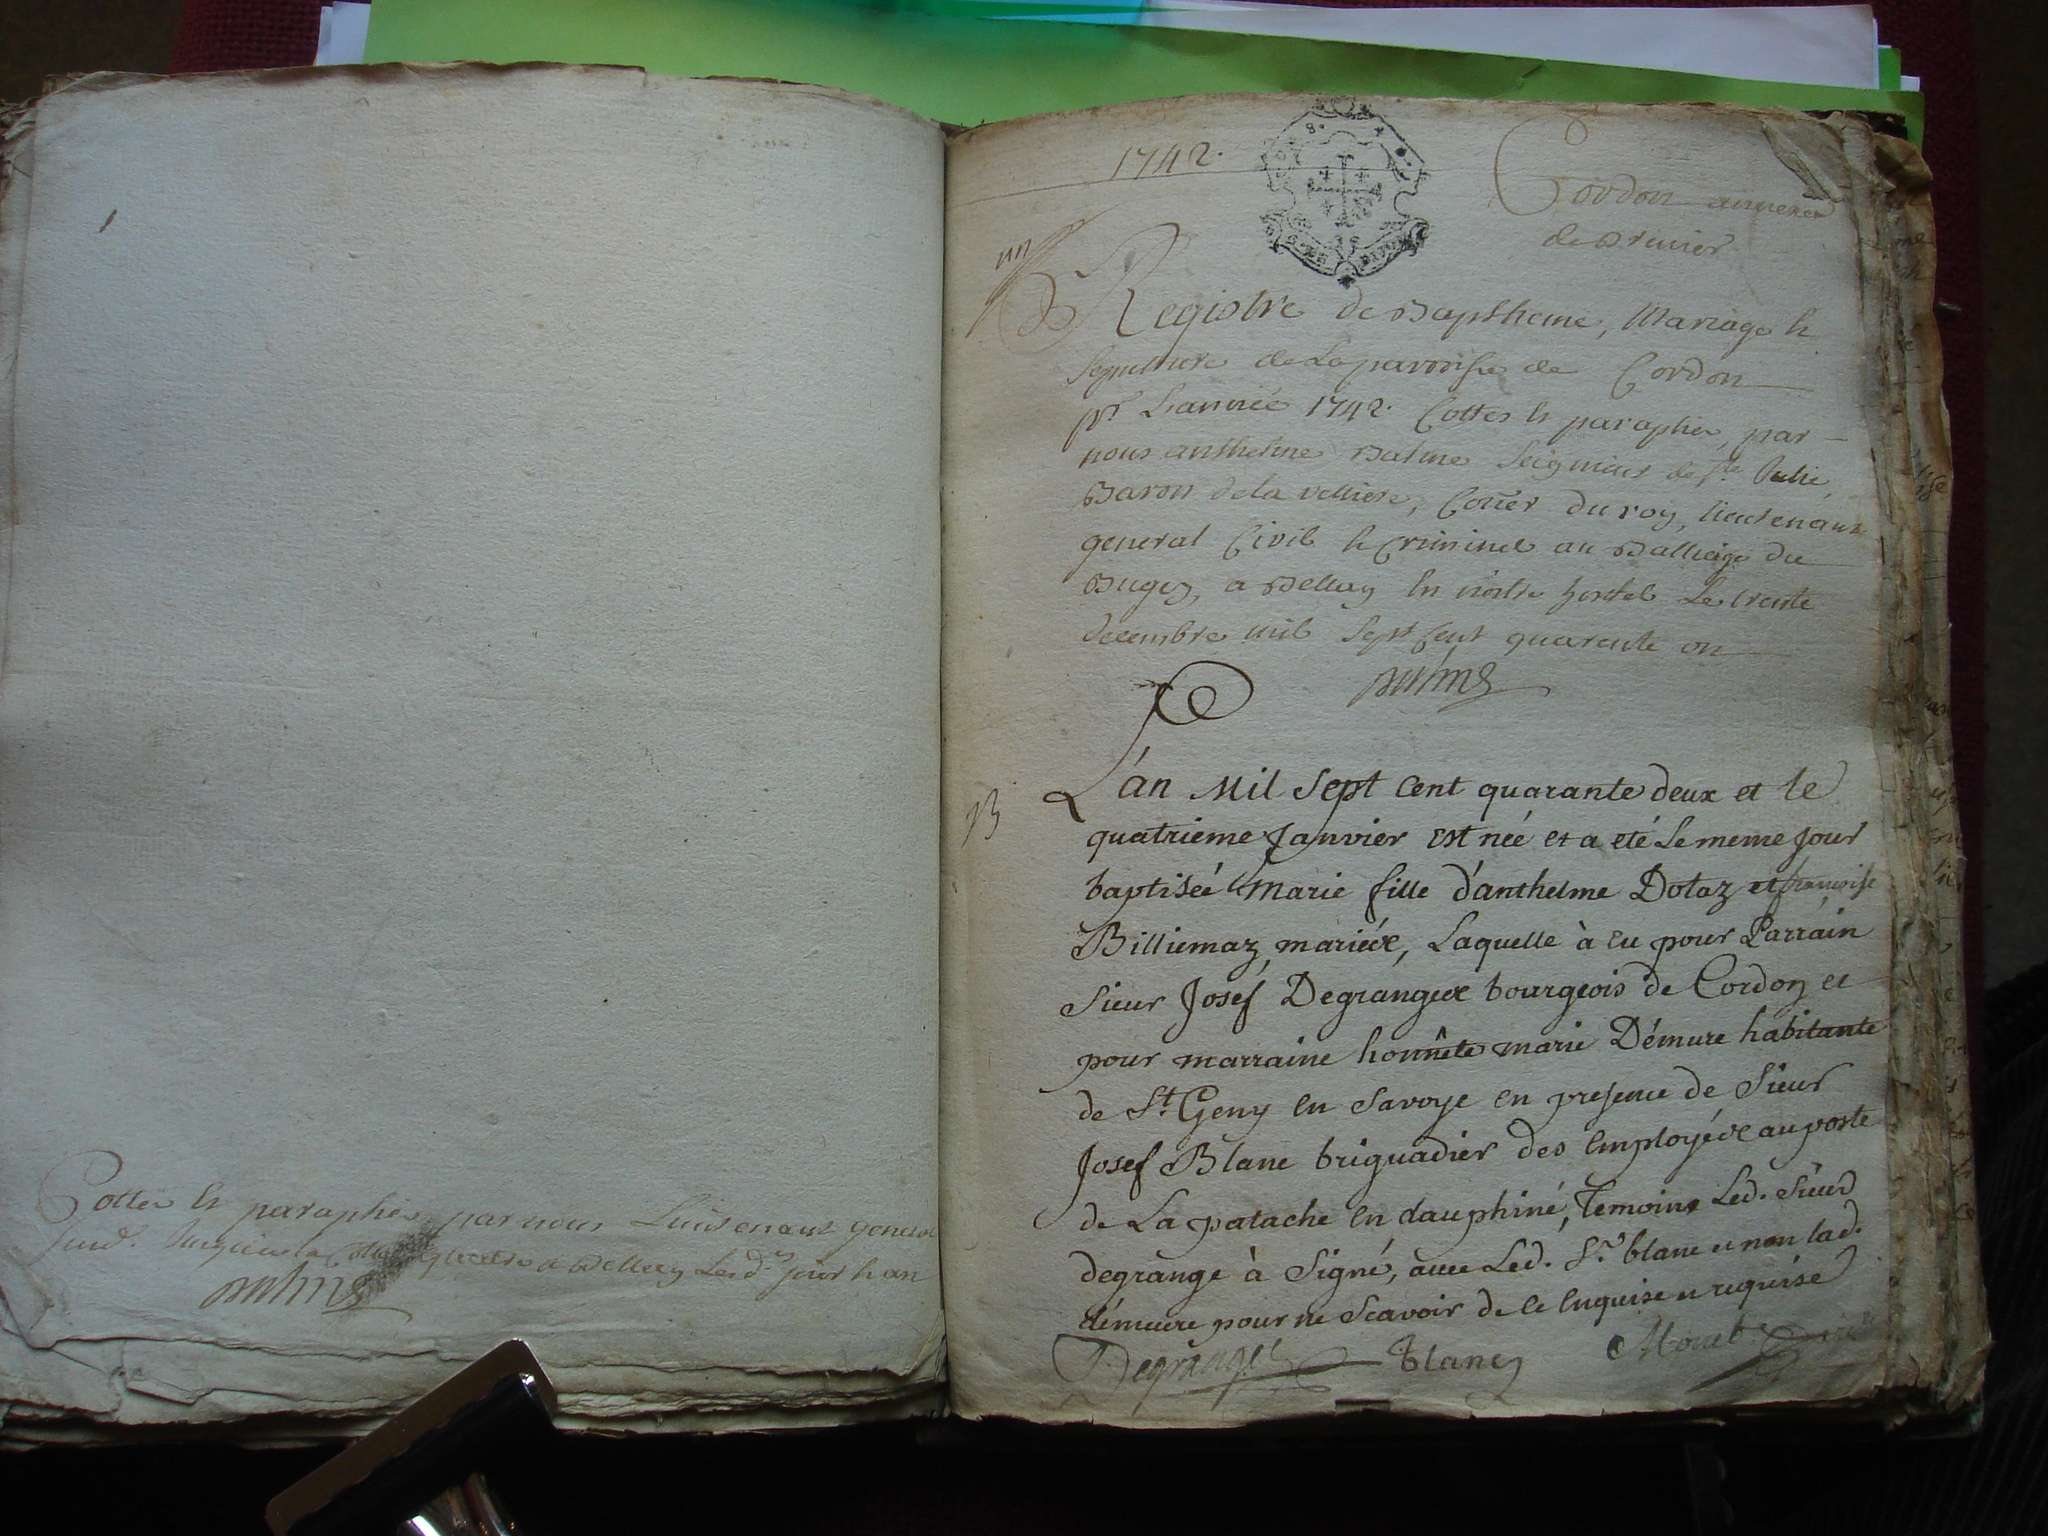 Cottés et paraphés par nous Lieutenant general
a Belley Led. jour et an
Balme
1742.
Cordon annexe
de Brenier
un
Registre de Baptheme, Mariage et
Sepulture de La parroisse de Cordon
pr L'année 1742. Cottés et paraphés, par
nous anthelme Balme Seigneur de Ste. Julie,
Baron de la velliere, Coner du roy, lieutenant
general Civil et Criminel au Balliage du
Bugey, a Belley en nostre hostel Le trente
decembre mil sept cent quarente un
Balme
B
L'an Mil Sept Cent quarante deux et le
quatrieme Janvier est née et a eté Le meme Jour
baptiseé Marie fille d'anthelme Dotaz et francoise
Billiemaz mariéx, Laquelle à eu pour Parrain
Sieur Josef Degrangex bourgeois de Cordon et
pour marraine honnête marie Démure habitante
de St. Geny en Savoye en presence de Sieur
Josef Blanc briguadier des Employéx au poste
de La patache en dauphiné, Temoins Led. Sieur
degrange à Signé, avec Led. Sr. blanc et non lad.
démeure pour ne Scavoir de ce enquise et requise
Degrange Blanc